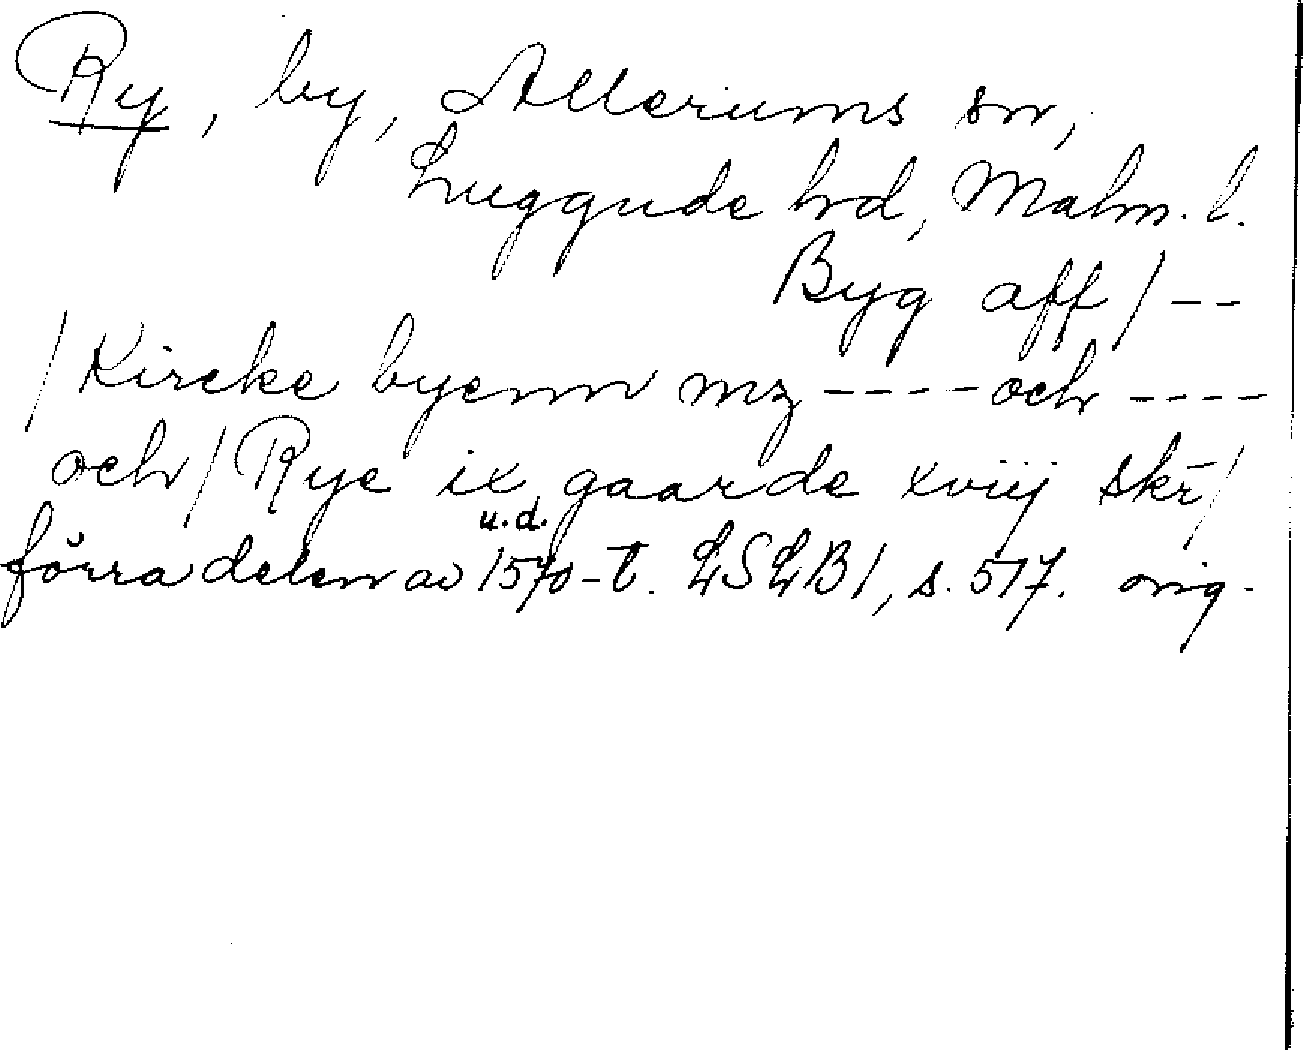 Ry, by, Allerums sn,
Luggude hd, Malm. l.
Byg aff / --
/ Kircke byenn mz ---- och ----
och / Rye ix gaarde xviij skr̄ /
u.d.
förra delen av 1570-t. LSLB 1, s. 517. orig.